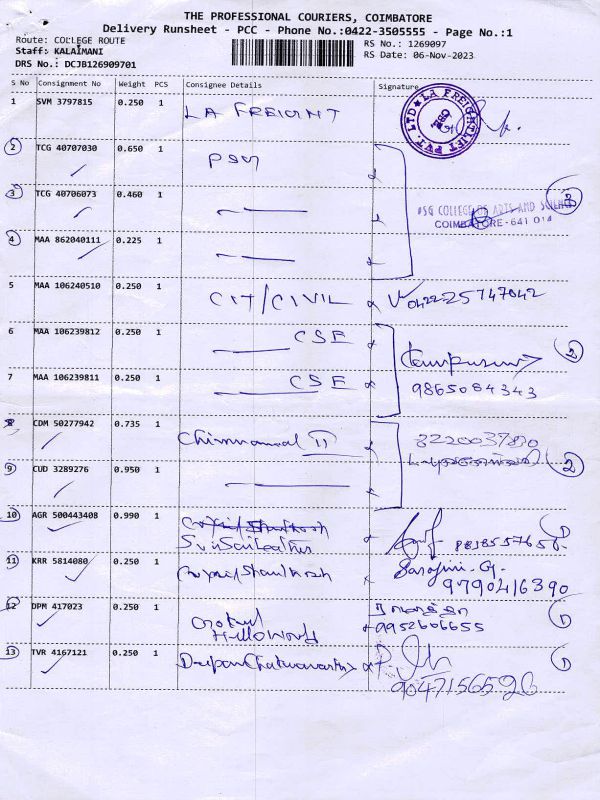 THE PROFESSIONAL COURIERS, COIMBATORE
Delivery Runsheet - PCC - Phone No.:0422-3505555 - Page No.:1
Route: COLLEGE ROUTE
Staff: KALAIMANI
DRS No.: DCJB126909701
RS No.: 1269097
RS Date: 06-Nov-2023
S No Consignment No Weight PCS Consignee Details Signature
1 SVM 3797815 0.250 1 LA FREIGHT
LA FREIGHTLIFT PVT. LTD
2 TCG 40707030 0.650 1 PSG
3 TCG 40706073 0.460 1
PSG COLLEGE OF ARTS AND SCIENCE
COIMBATORE - 641 014
4 MAA 862040111 0.225 1
5 MAA 106240510 0.250 1 CIT/CIVIL 0422-25747042
6 MAA 106239812 0.250 1 CSE
7 MAA 106239811 0.250 1 CSE 9865084343
2
8 CDM 50277942 0.735 1 II 8220037830
9 CUD 3289276 0.950 1
2
10 AGR 500443408 0.990 1
1
11 KRR 5814080 0.250 1 Sarojini. G.
9790416390
12 DPM 417023 0.250 1
Hello World 9952606655
1
13 TVR 4167121 0.250 1 Deepan Chakravarthy
1
9047156526